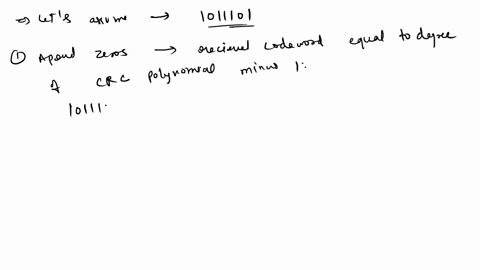 ⇒ Let's assume → 1011101
① Apend zeros → recieved codeword equal to degree
of CRC polynomial minus 1:
10111.